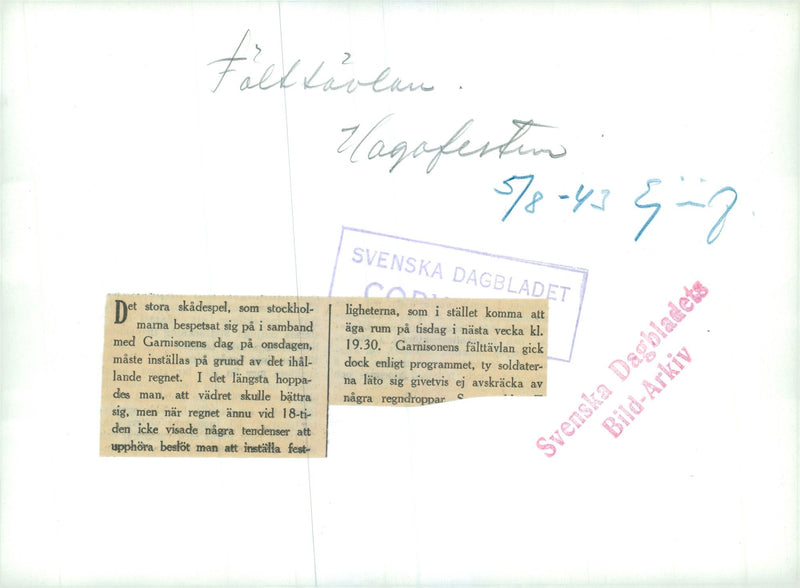 Fälttävlan.
Hagafesten
5/8-43 Ej
SVENSKA DAGBLADET
Det stora skådespel, som stockhol-
marna bespetsat sig på i samband
med Garnisonens dag på onsdagen,
måste inställas på grund av det ihål-
lande regnet. I det längsta hoppa-
des man, att vädret skulle bättra
sig, men när regnet ännu vid 18-ti-
den icke visade några tendenser att
upphöra beslöt man att inställa fest-
ligheterna, som i stället komma att
äga rum på tisdag i nästa vecka kl.
19.30. Garnisonens fälttävlan gick
dock enligt programmet, ty soldater-
na läto sig givetvis ej avskräcka av
några regndroppar.
Svenska Dagbladets
Bild-Arkiv